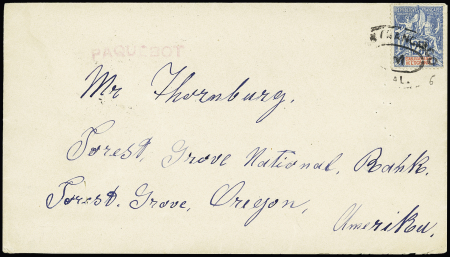 Mr Thornburg.
Forest, Grove National, Bank.
Forest. Grove, Oregon,
Amerika.